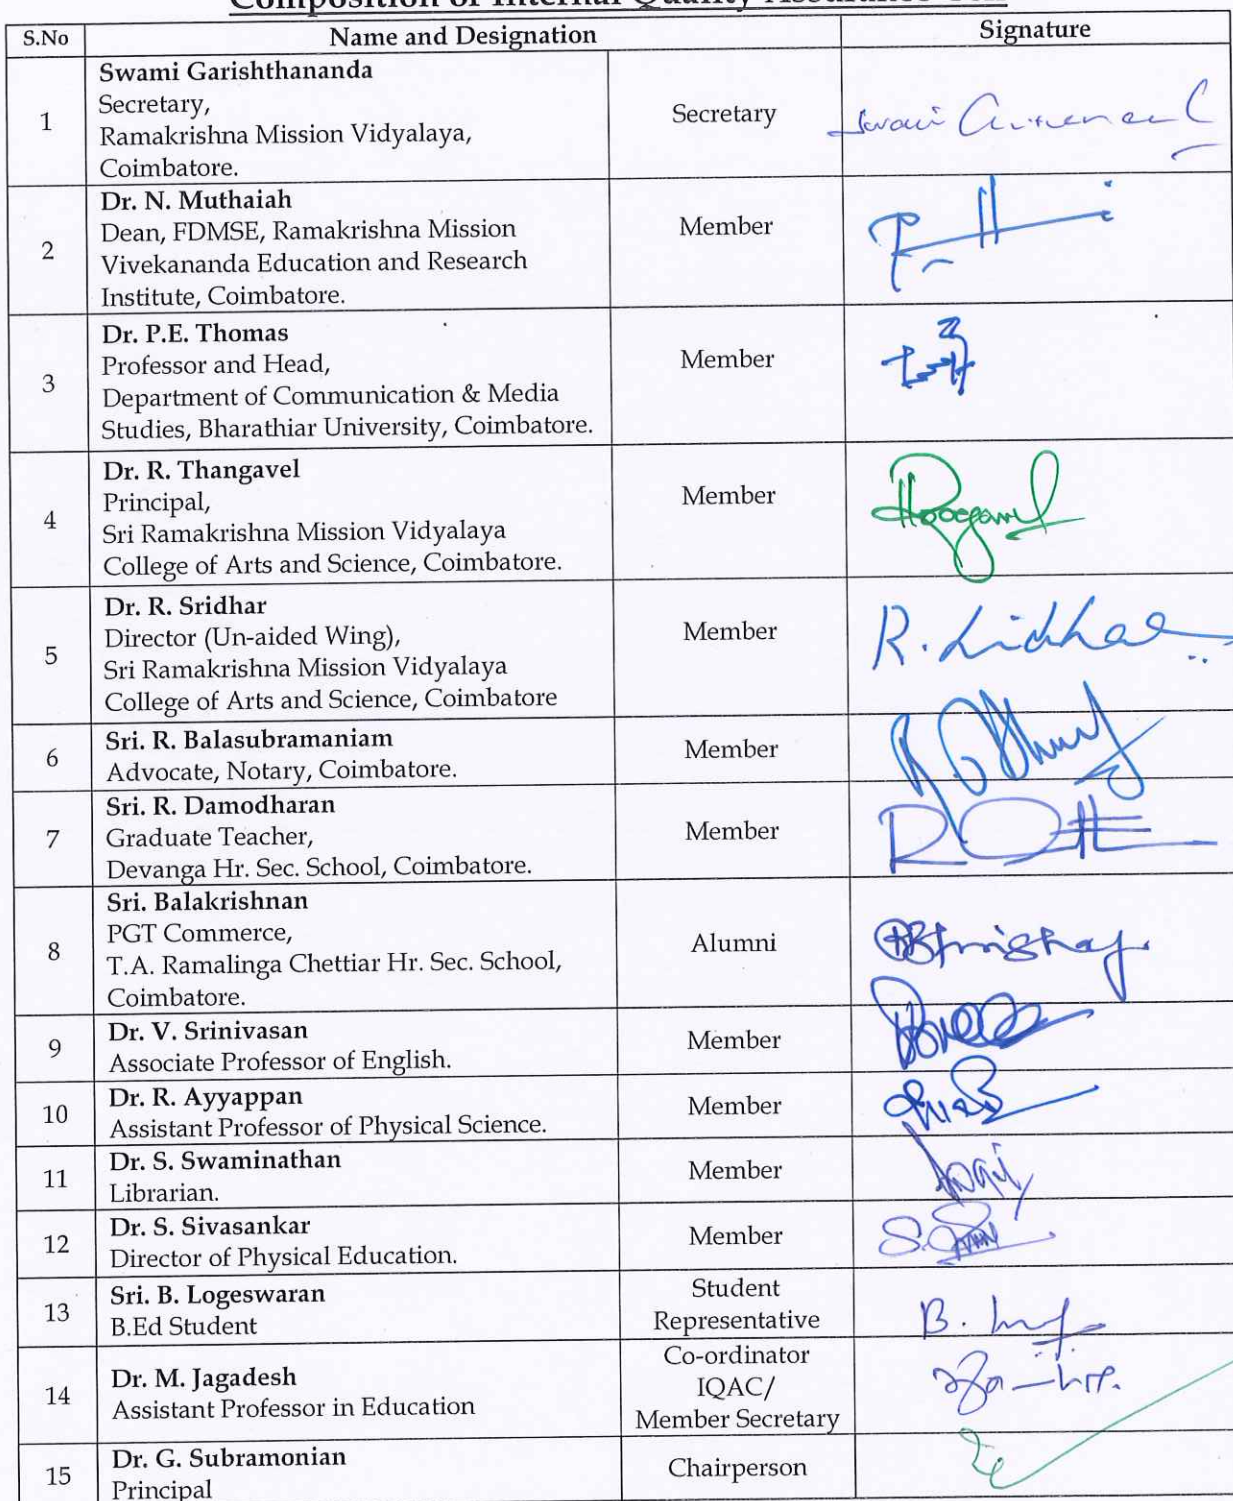 Composition of Internal Quality Assurance Cell
S.No Name and Designation Signature
1
Swami Garishthananda
Secretary,
Ramakrishna Mission Vidyalaya,
Coimbatore.
Secretary
2
Dr. N. Muthaiah
Dean, FDMSE, Ramakrishna Mission
Vivekananda Education and Research
Institute, Coimbatore.
Member
3
Dr. P.E. Thomas
Professor and Head,
Department of Communication & Media
Studies, Bharathiar University, Coimbatore.
Member
4
Dr. R. Thangavel
Principal,
Sri Ramakrishna Mission Vidyalaya
College of Arts and Science, Coimbatore.
Member
5
Dr. R. Sridhar
Director (Un-aided Wing),
Sri Ramakrishna Mission Vidyalaya
College of Arts and Science, Coimbatore
Member
R. Sridhar
6
Sri. R. Balasubramaniam
Advocate, Notary, Coimbatore.
Member
7
Sri. R. Damodharan
Graduate Teacher,
Devanga Hr. Sec. School, Coimbatore.
Member
8
Sri. Balakrishnan
PGT Commerce,
T.A. Ramalinga Chettiar Hr. Sec. School,
Coimbatore.
Alumni
9
Dr. V. Srinivasan
Associate Professor of English.
Member
10
Dr. R. Ayyappan
Assistant Professor of Physical Science.
Member
11
Dr. S. Swaminathan
Librarian.
Member
12
Dr. S. Sivasankar
Director of Physical Education.
Member
13
Sri. B. Logeswaran
B.Ed Student
Student
Representative
14
Dr. M. Jagadesh
Assistant Professor in Education
Co-ordinator
IQAC/
Member Secretary
15
Dr. G. Subramonian
Principal
Chairperson